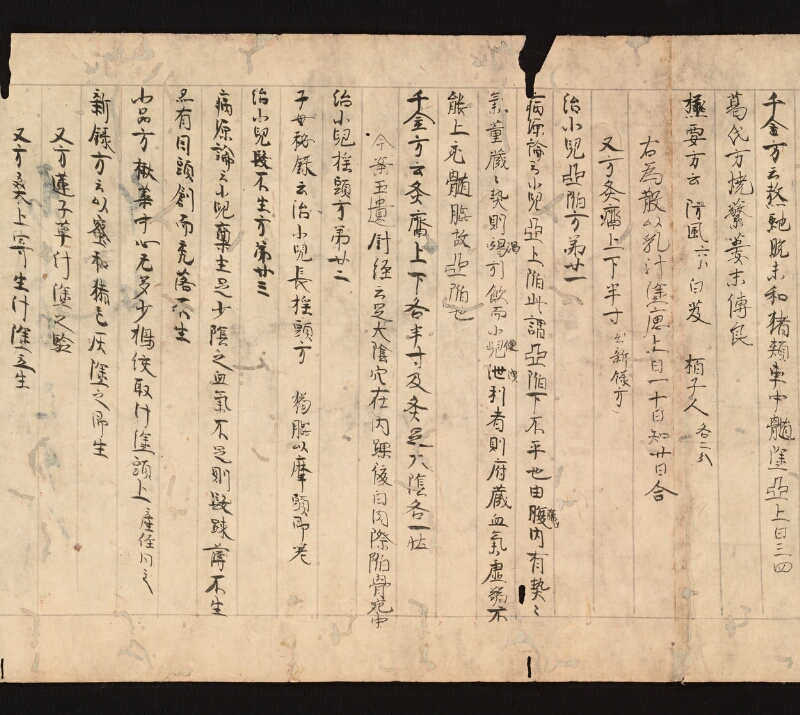 千金方云熬虵脱末和猪頬車中髓塗囟上日三四
葛氏方燒蘩蔞末傅良
極要方云 防風六分 白芨 栢子人各二分
右為散以乳汁塗恵上日一十日知廿日合
又方灸臍上下半寸出新録方
治小兒囟陥方第廿一
病源論云小兒囟陥此謂囟陥下不平也由腹腸内有熱々
氣薫蔵々熱則渇引飲而小兒便洩泄利者則府蔵血氣虚弱不
能上充髓脳故囟陥也
千金方云灸臍上下各半寸及灸足大陰各一壮
今案玉遺針経云足大陰穴在内踝後白肉際陥骨宛中
治小兒揺頭方第廿二
子母秘録云治小兒長揺頭方 猪脳以摩頭即差
治小兒髮不生方第廿三
病源論云小兒稟主足少陰之血氣不足則髮疎薄不生
亦有因頭創而禿落不生
小品方楸葉中心无多少搗絞取汁塗頭上 産経同之
新録方云以蜜和猪毛灰塗之即生
又方蓮子草汁塗之驗
又方桑上寄生汁塗之生